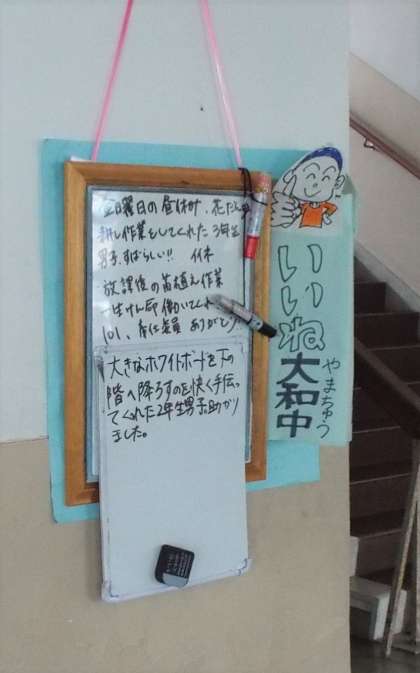 金曜日の昼休み、花だんの
耕し作業をしてくれた3年生
男子、すばらしい!!
放課後の苗植え作業
一生けん命働いてくれた
大きなホワイトボードを下の
階へ降ろすのを快く手伝っ
てくれた2年生男子助かり
ました。
いいね
やまちゅう
大和中